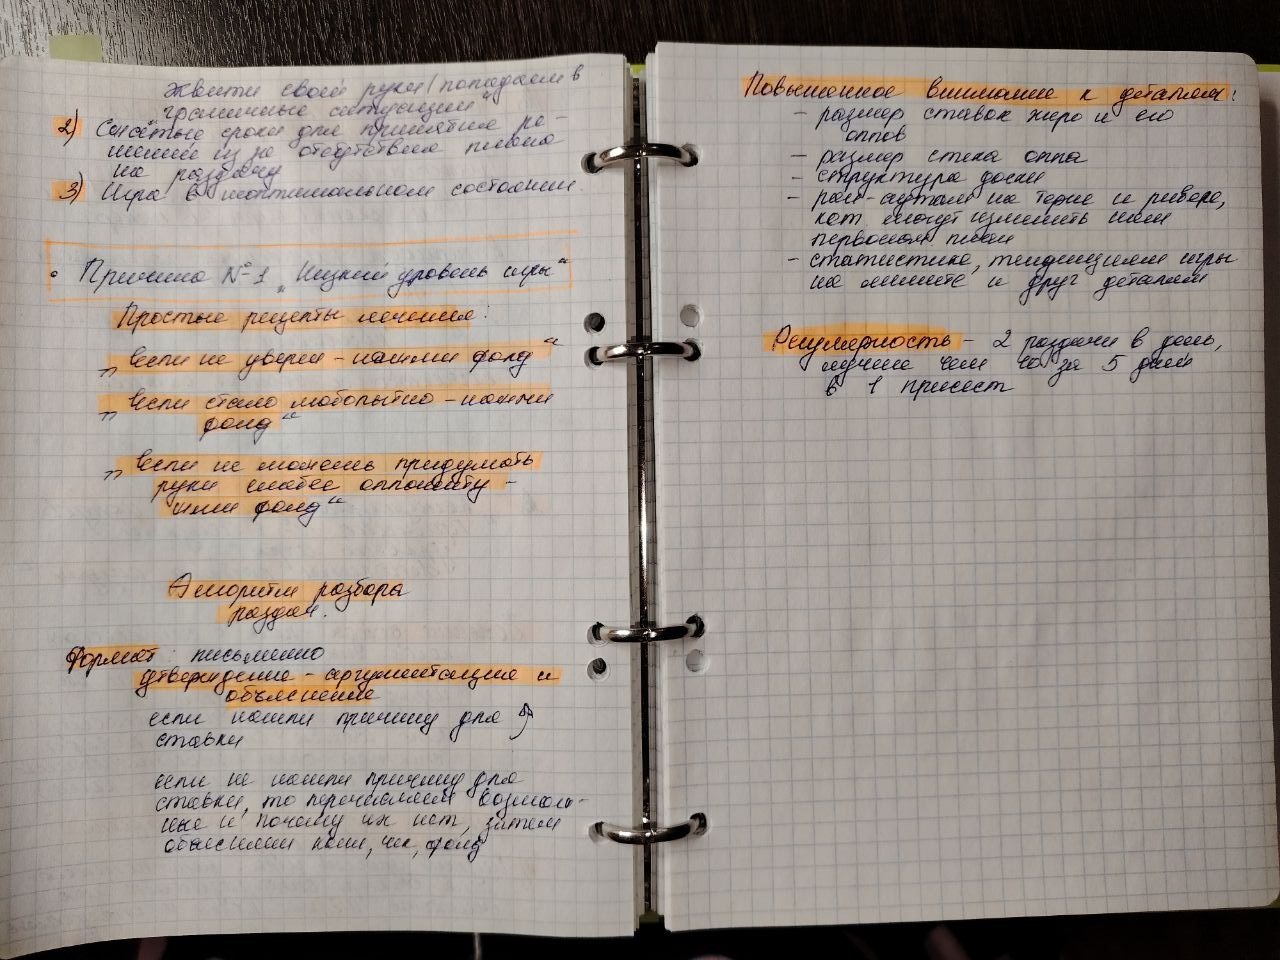 жвити своей руки / попадаем в
„граничные ситуации“
2) Сжатые сроки для принятия ре-
шений из за отсутствия плана
на раздачу
3) Игра в неоптимальном состоянии.
• Причина №1 „Низкий уровень игры“
Простые рецепты лечения:
„если не уверен - нажми фолд“
„если стало любопытно - нажми
фолд“
„если не можешь придумать
руки слабее оппоненту -
жми фолд“
Алгоритм разбора
раздач.
Формат: письменно
утверждение - аргументация и
объяснение
если нашли причину для
ставки
если не нашли причину для
ставки, то перечисляем возмож-
ные и почему их нет, затем
объясняем колл, чек, фолд
Повышенное внимание к деталям:
- размер ставок хиро и его
оппов
- размер стека оппа
- структура доски
- ран-аутам на терне и ривере,
кот могут изменить наш
первонач план
- статистике, тенденциям игры
на лимите и друг деталям
Регулярность - 2 раздачи в день,
лучше чем 10 за 5 дней
в 1 присест